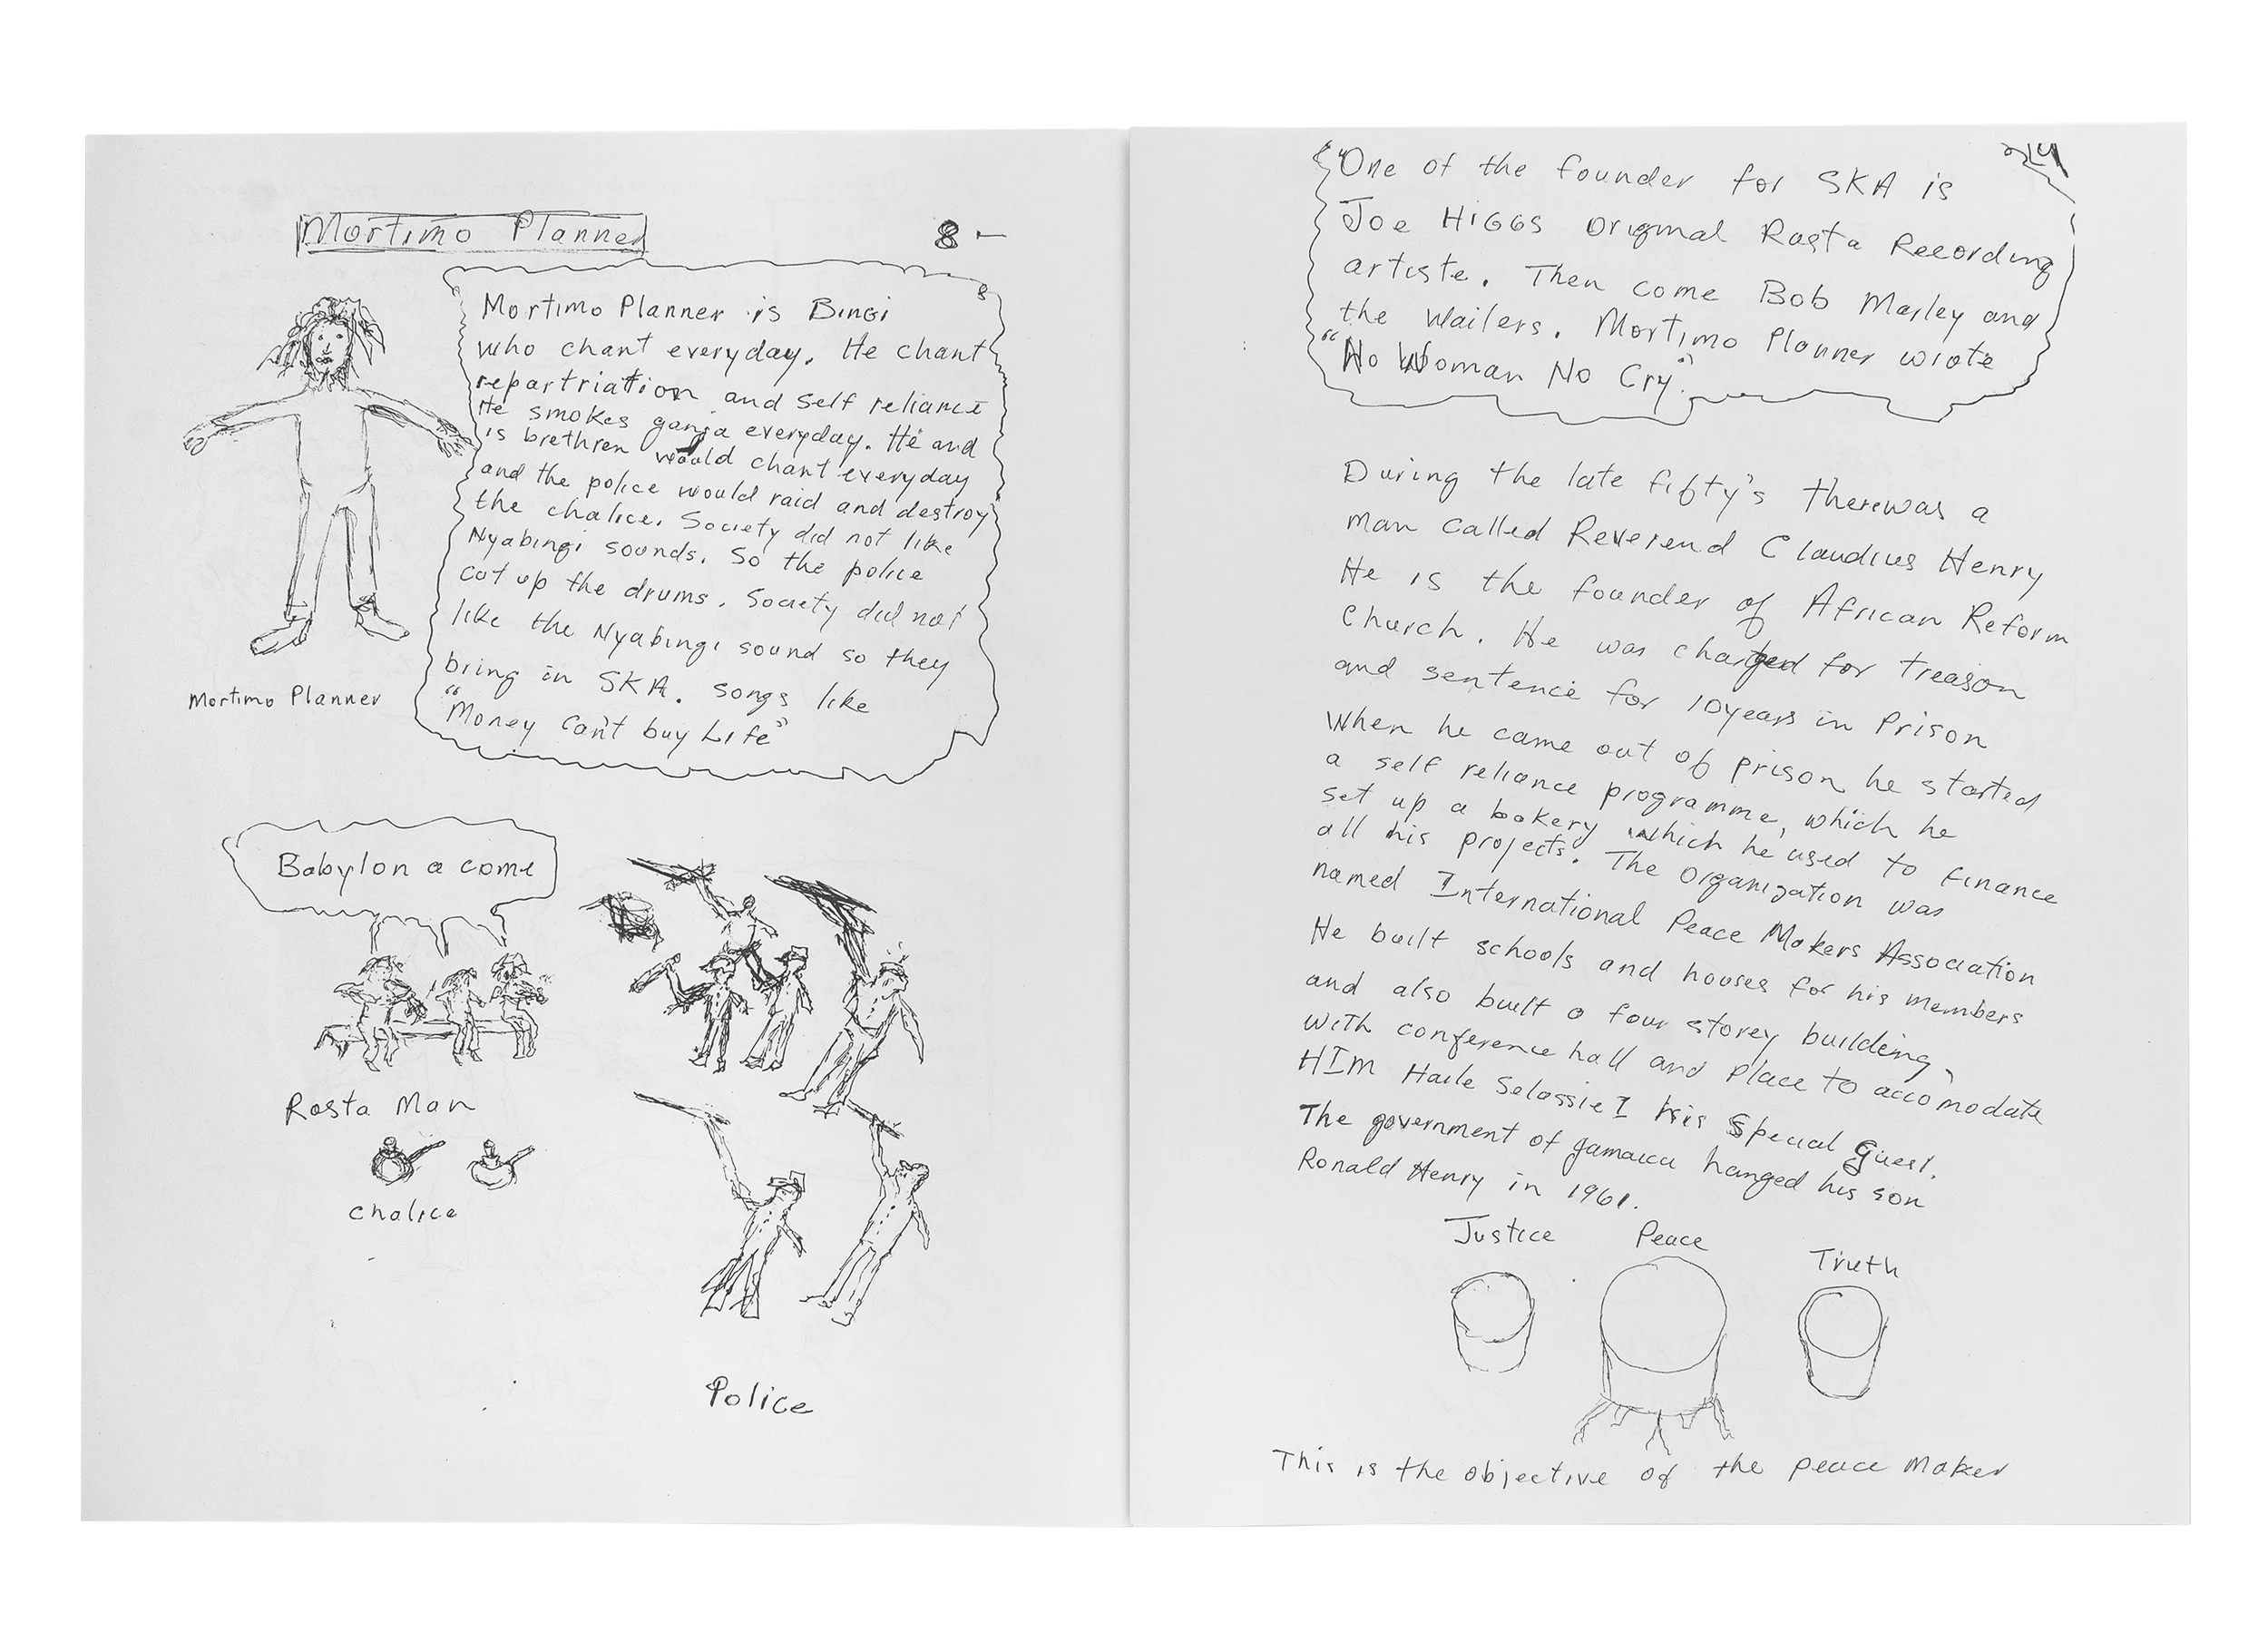 Mortimo Planner
8 -
Mortimo Planner is Bingi
who chant everyday. He chant
repartriation and self reliance
He smokes ganja everyday. He and
is brethren would chant everyday
and the police would raid and destroy
the chalice. Society did not like
Nyabingi sounds. So the police
cut up the drums. Society did not
like the Nyabingi sound so they
bring in SKA. songs like
"Money can't buy Life"
Mortimo Planner
Babylon a come
Rasta Man
chalice
Police
"One of the founder for SKA is
Joe HIGGS Original Rasta Recording
artiste. Then come Bob Marley and
the Wailers. Mortimo Planner wrote
"No Woman No Cry."
During the late fifty's therewas a
man called Reverend Claudius Henry
He is the founder of African Reform
Church. He was charged for treason
and sentence for 10years in Prison
When he came out of prison he started
a self reliance programme, which he
set up a bakery which he used to finance
all his projects. The Organization was
named International Peace Makers Association
He built schools and houses for his members
and also built a four storey building,
with conference hall and Place to accomodate
HIM Haile Selassie I his Special Guest.
The government of Jamaica hanged his son
Ronald Henry in 1961.
Justice Peace Truth
This is the objective of the peace Maker